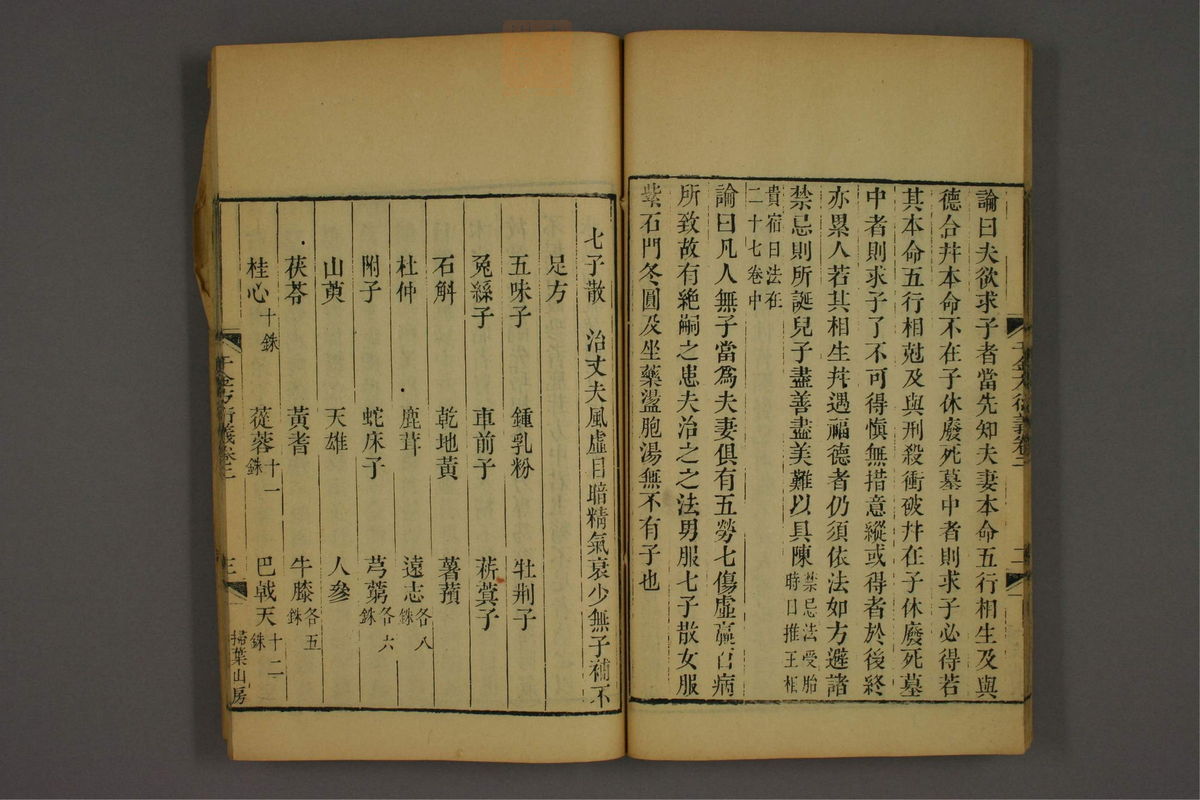 論曰夫欲求子者當先知夫妻本命五行相生及與
德合幷本命不在子休廢死墓中者則求子必得若
其本命五行相尅及與刑殺衝破幷在子休廢死墓
中者則求子了不可得愼無措意縱或得者於後終
亦累人若其相生幷遇福德者仍須依法如方避諸
禁忌則所誕兒子盡善盡美難以具陳禁忌法受胎
時日推王相
貴宿日法在
二十七卷中
論曰凡人無子當爲夫妻俱有五勞七傷虛羸百病
所致故有絶嗣之患夫治之之法男服七子散女服
紫石門冬圓及坐藥盪胞湯無不有子也
千金方衍義卷二
二
七子散 治丈夫風虛目暗精氣衰少無子補不
足方
五味子 鍾乳粉 牡荆子
兔絲子 車前子 菥蓂子
石斛 乾地黃 薯蕷
杜仲 鹿茸 遠志各八銖
附子 蛇床子 芎藭各六銖
山萸 天雄 人參
茯苓 黃耆 牛膝各五銖
桂心十銖 蓯蓉十一銖 巴戟天十二銖
千金方衍義卷二
三
掃葉山房